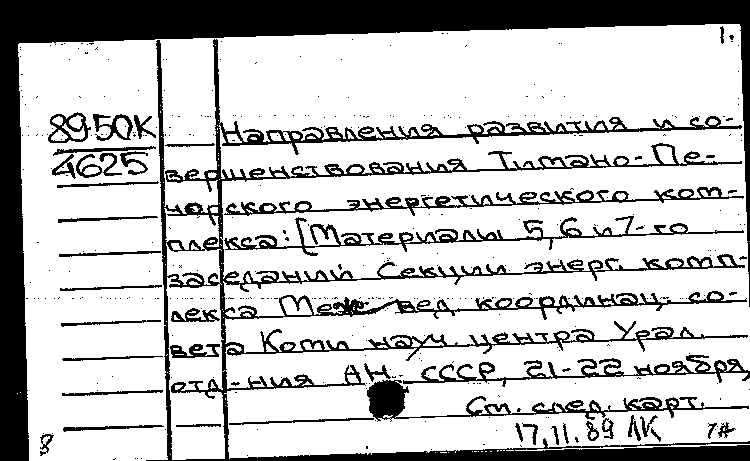 1.
89-50К
4625
Направления развития и со-
вершенствования Тимано-Пе-
чорского энергетического ком-
плекса: [Материалы 5, 6 и 7-го
заседаний Секции энерг. комп-
лекса Меж вед. координац. со-
вета Коми науч. центра Урал.
отд-ния АН СССР, 21-22 ноября,
См. след. карт.
17.11.89 ЛК
8